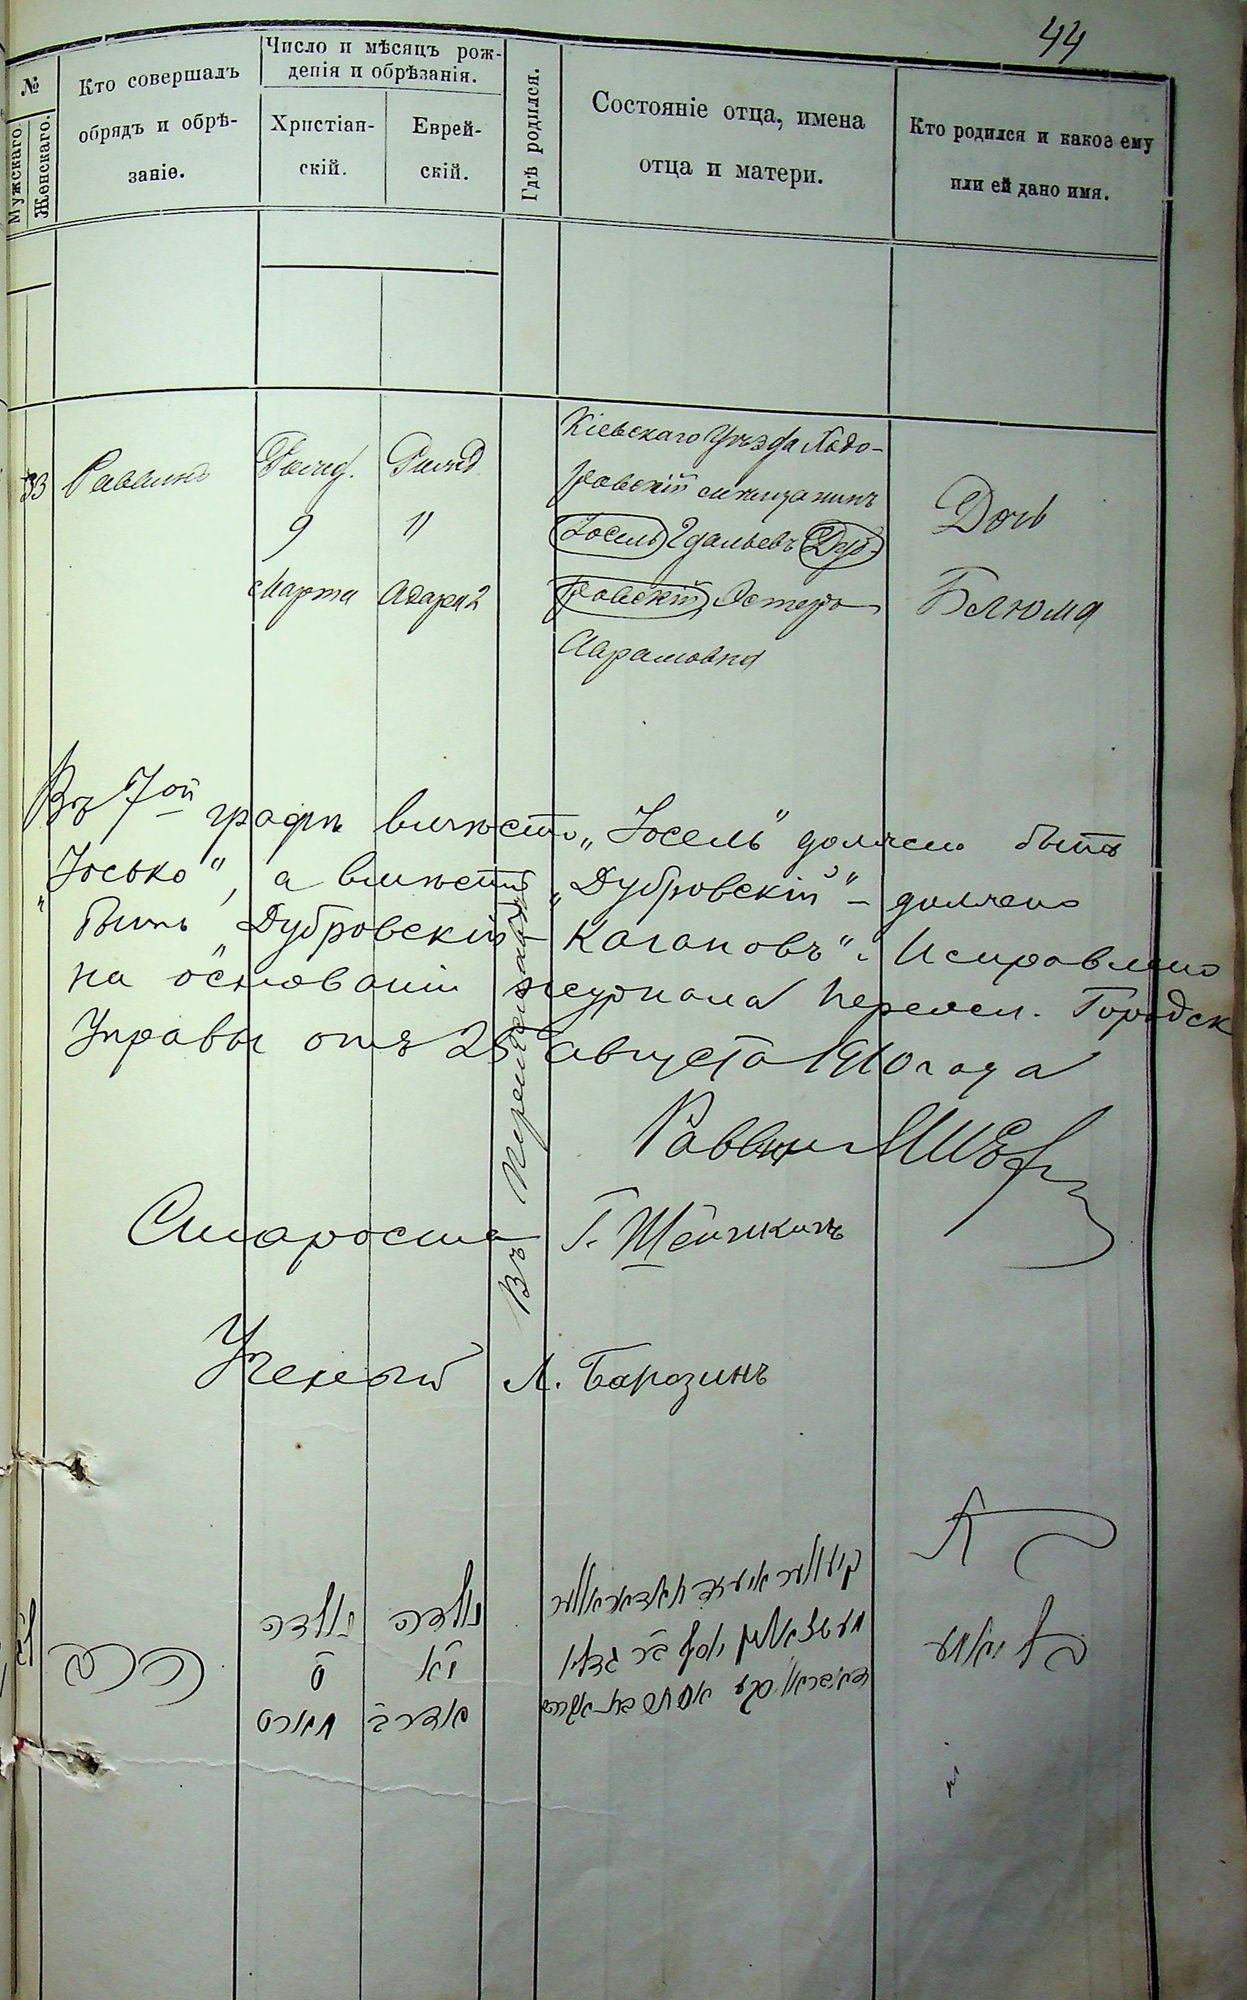 44
№
Мужскаго.
Женскаго.
Кто совершалъ
обрядъ и обрѣ-
заніе.
Число и мѣсяцъ рож-
денія и обрѣзанія.
Христіан-
скій.
Еврей-
скій.
Гдѣ родился.
Состояніе отца, имена
отца и матери.
Кто родился и какое ему
или ей дано имя.
33
Раввинъ
Рожд.
9
Марта
Рожд
11
Адара 2
Кіевскаго Уѣзда Ходо-
ровскій мѣщанинъ
Іосель Гдальевъ Дуб-
ровскій Эстеръ
Абрамовна
Дочь
Блюма
Въ Переяславѣ
Въ 7ой графѣ вмѣсто „Іосель" должно быть
„Іосько", а вмѣсто „Дубровскій" – должно
быть „Дубровскій – Кагановъ". Исправлено
на основаніи журнала Переясл. Городск
Управы отъ 25 августа 1910 года
Раввин
Староста Г.
Ученый Л. Барозинъ
נולדה
ט
מארט
נולדה
י״א
אדר ב
בלומע